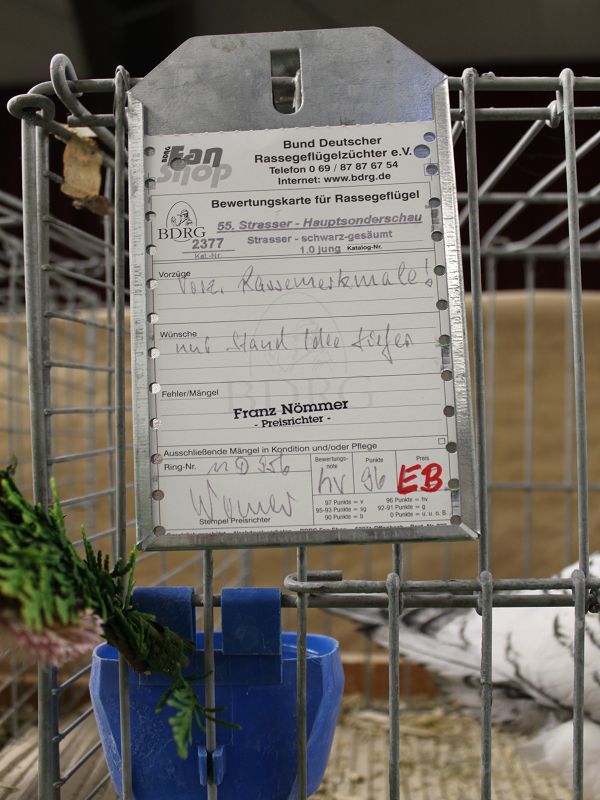 BDRG Fan Shop
Bund Deutscher
Rassegeflügelzüchter e.V.
Telefon 0 69 / 87 87 67 54
Internet: www.bdrg.de
Bewertungskarte für Rassegeflügel
BDRG
55. Strasser - Hauptsonderschau
2377 Strasser - schwarz-gesäumt
Kat.-Nr. 1.0 jung Katalog-Nr.
Vorzüge
Vorz. Rassemerkmale!
Wünsche
nur Stand Idee tiefer
BDRG
Fehler/Mängel
Franz Nömmer
- Preisrichter -
Ausschließende Mängel in Kondition und/oder Pflege
Ring-Nr. Bewertungs-note Punkte Preis
hv 96 EB
Stempel Preisrichter
97 Punkte = v 96 Punkte = hv
95-93 Punkte = sg 92-91 Punkte = g
90 Punkte = b 0 Punkte = u. u. o. B.